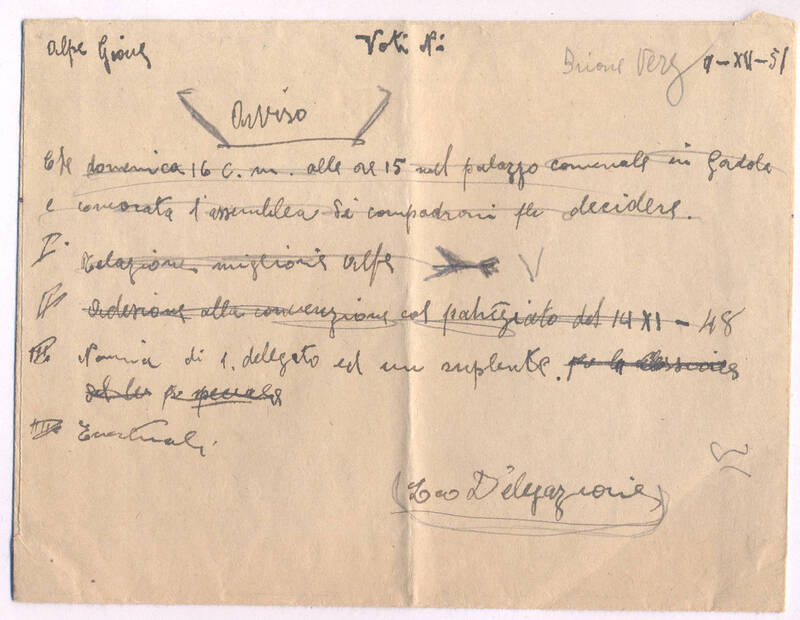 Alpe Giove Voti Ni Brione Verz 9-XII-51
Avviso
domenica 16 c. m. alle ore 15 nel palazzo comunale in Gordola
e convocata l'assemblea di compadroni per decidere.
I. Relazione migliorie alpe V
II. Adesione alla convenzione col patriziato del 14 XI - 48
III. Nomina di 1. delegato ed un suplente.
IIII Eventuali.
La Delegazione